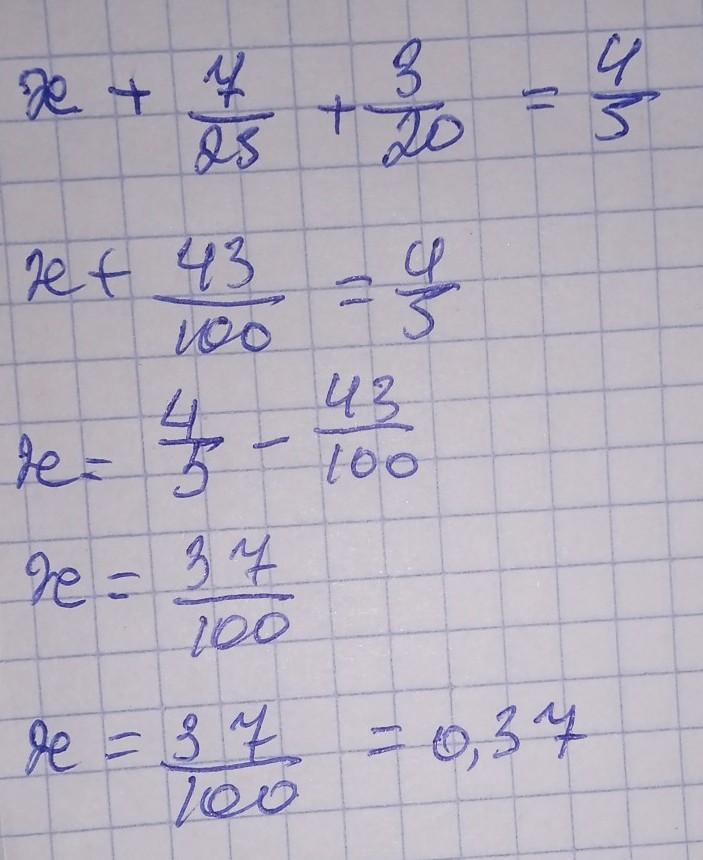 x + 7/25 + 3/20 = 4/5
x + 43/100 = 4/5
x = 4/5 - 43/100
x = 37/100
x = 37/100 = 0,37